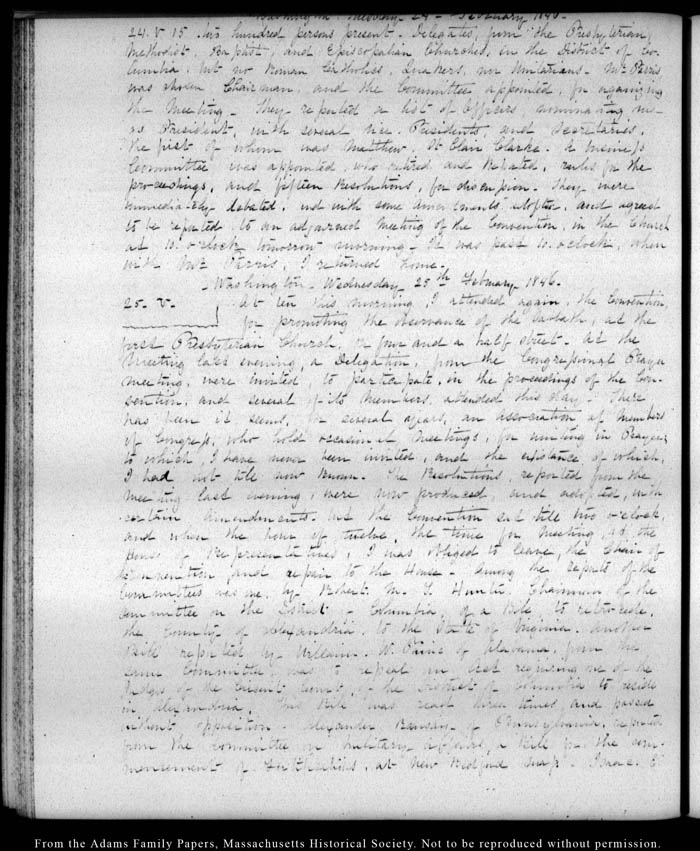 Washington Tuesday 24th February 1846.
24. V. 15. hundred persons present. Delegates, from the Presbyterian,
Methodist, Baptist, and Episcopalian Churches, in the District of Co-
lumbia, but no Roman Catholics, Quakers, nor Unitarians. Mr Ferris
was chosen Chairman, and the Committee appointed, for organizing
the Meeting. They reported a list of Officers, nominating me
as President, with several Vice-Presidents, and Secretaries,
the first of whom was Matthew St Clair Clarke. A business
Committee was appointed, who retired and reported, rules for the
proceedings, and fifteen Resolutions, for discussion. They were
immediately debated, and with some amendments adopted, and agreed
to be reported, to an adjourned Meeting of the Convention, in the Church
at 10. o'clock tomorrow morning. It was past 10. o'clock, when
with Mr Ferris, I returned home.
Washington. Wednesday 25th February 1846.
25. V. At ten this morning, I attended again, the Convention,
for promoting the observance of the Sabbath, at the
first Presbyterian Church, on four and a half street. At the
Meeting last evening, a Delegation, from the Congressional Prayer
meeting, were invited, to participate, in the proceedings of the Con-
vention, and several of its Members, attended this day. There
has been it seems, for several years, an association of members
of Congress, who hold occasional meetings, for uniting in Prayer;
to which, I have never been invited, and the existence of which,
I had not till now known. The Resolutions, reported from the
meeting last evening, were now produced, and adopted, with
certain amendments. But the Convention sat till two o'clock,
and when the hour of twelve, the time for meeting, of the
House of Representatives, I was obliged to leave, the Chair of
the Convention, and repair to the House. Among the reports of the
Committees was one, by Robert M. T. Hunter, Chairman of the
Committee on the District of Columbia, of a Bill, to retrocede,
the County of Alexandria, to the State of Virginia. Another
Bill reported by William W. Payne of Alabama, from the
same Committee, was to repeal an Act requiring one of the
Judges of the Circuit Court, of the District of Columbia to reside
in Alexandria. This Bill was read three times, and passed
without opposition. Alexander Ramsey, of Pennsylvania, reported
from the Committee on Military affairs, a Bill for the com-
mencement of Fortifications, at New Bedford Isaac E
From the Adams Family Papers, Massachusetts Historical Society. Not to be reproduced without permission.